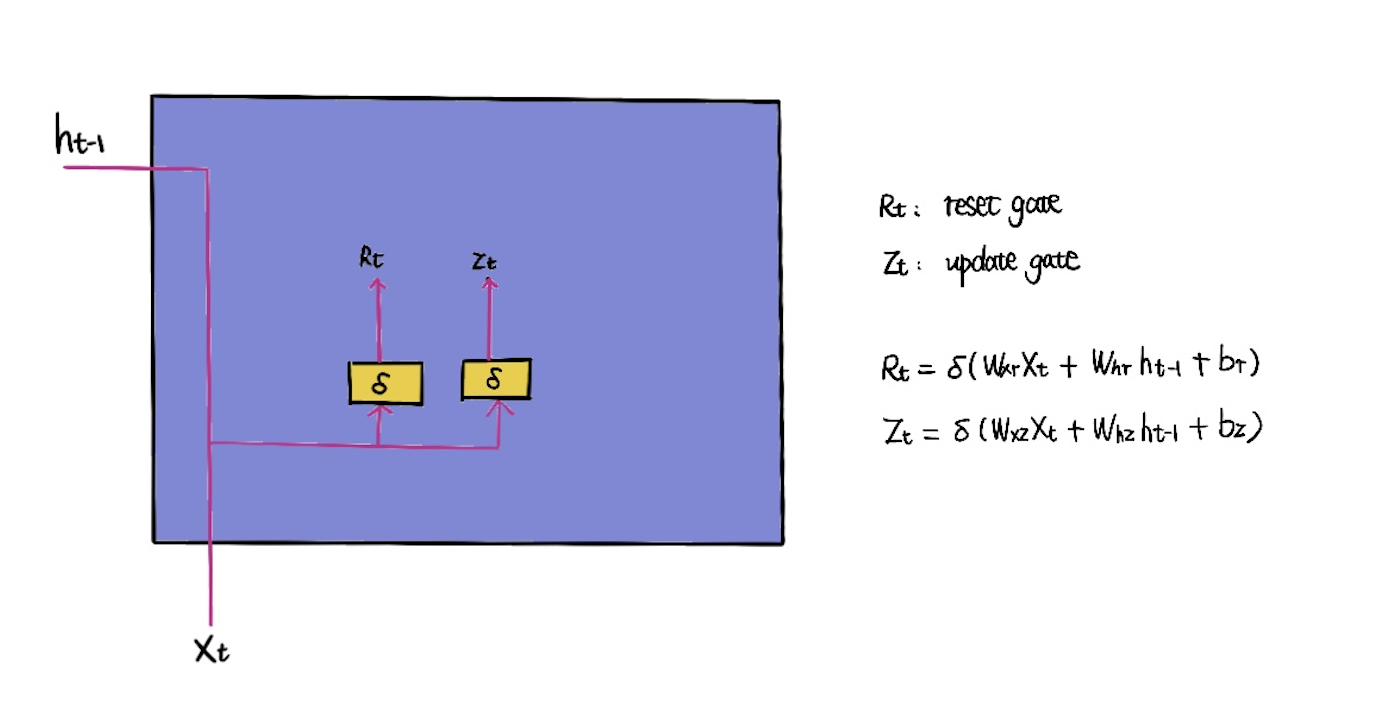 ht-1
Rt
Zt
δ
δ
Xt
Rt: reset gate
Zt: update gate
Rt = δ(WxrXt + Whr ht-1 + br)
Zt = δ(WxzXt + Whz ht-1 + bz)